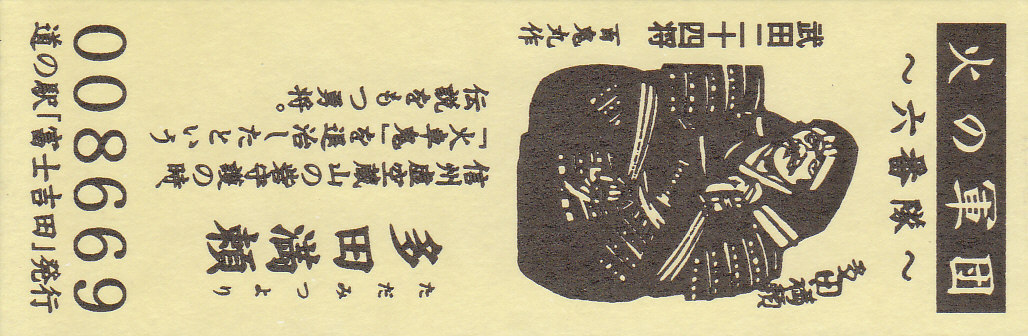 火の軍団
～六番隊～
武田二十四将 百鬼丸作
多田満頼
ただみつより
多田満頼
信州虚空蔵山の砦守護の時
「火車鬼」を退治したという
伝説をもつ勇将。
008669
道の駅「富士吉田」発行